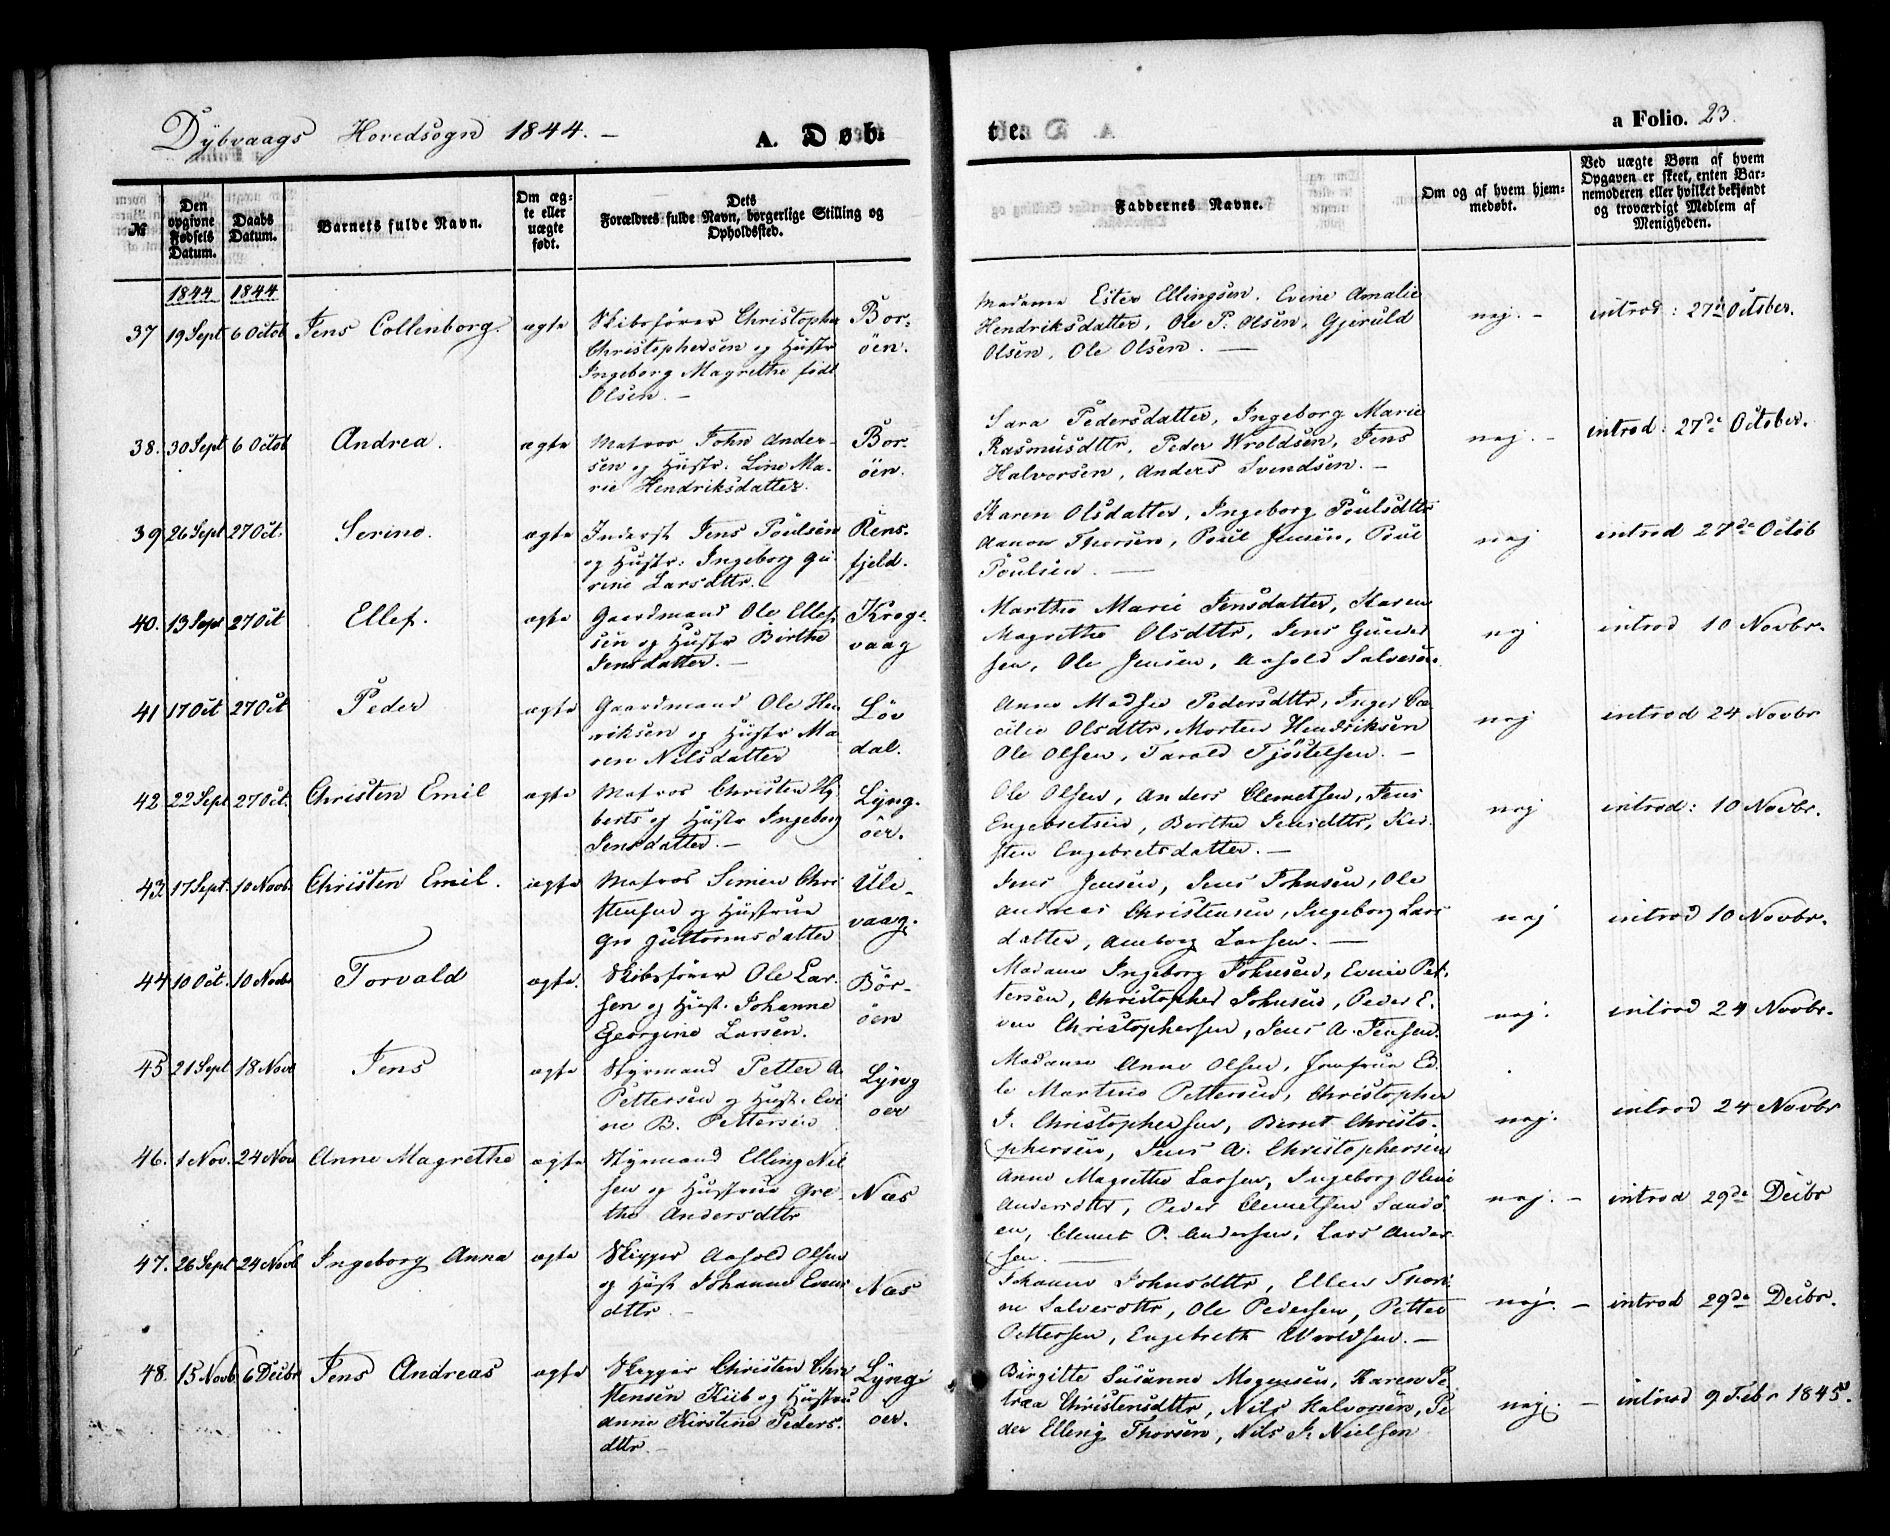 Dybvaags Hovedsogn 1844. – A. Døb-
te.
a Folio. 23.
№
Den opgivne Fødsels Datum.
Daabs Datum.
Barnets fulde Navn.
Om ægte eller uægte født.
Dets Forældres fulde Navn, borgerlige Stilling og Opholdssted.
Faddernes Navne.
Om og af hvem hjemmedøbt.
Ved uægte Børn af hvem Opgaven er skeet, enten Barnemoderen eller hvilket bekjendt og troværdigt Medlem af Menigheden.
1844 1844
37 19 Sept 6 Octob Jens Collenborg. ægte
Skibsfører Christopher
Christophersen og Hustr
Ingeborg Magrethe født
Olsen. –
Bor-
öen.
Madame Ester Ellingsen. Evine Amalie
Hendriksdatter, Ole P. Olsen, Gjeruld
Olsen, Ole Olsen. –
nej. – introd: 27de October.
38. 30 Sept 6 Octob Andrea. ægte
Matros John Ander-
sen og Hustr. Line Ma-
rie Hendriksdatter.
Bor-
öen.
Sara Pedersdatter, Ingeborg Marie
Rasmusdttr, Peder Wroldsen, Jens
Halvorsen, Anders Svendsen. –
nej. – introd: 27de October.
39 26 Sept 27 Oct. Serine. ægte
Inderst Jens Poulsen
og Hustr: Ingeborg Gu-
rine Larsdttr.
Rens-
fjeld.
Karen Olsdatter, Ingeborg Poulsdttr
Aanon Thorsen, Poul Jensen, Poul
Poulsen. –
nej introd 27de Octob
40. 13 Sept 27 Oct Ellef. ægte
Gaardmand Ole Ellef-
sen og Hustr Birthe
Jensdatter. –
Krog-
vaag
Marthe Marie Jensdatter, Karen
Magrethe Olsdttr, Jens Gunder
sen, Ole Jensen, Aasold Salvesen.
nej introd 10 Novbr.
41 17 Oct 27 Oct Peder ægte
Gaardmand Ole Hen
riksen og Hustr Ma-
ren Nilsdatter
Löv
dal.
Anne Madse Pedersdttr, Inger Ce-
cilie Olsdttr, Morten Hendriksen
Ole Olsen, Tarald Tjöstelsen. –
nej introd 24 Novbr
42 22 Sept 27 Oct. Christen Emil ægte
Matros Christen Hy
berts og Hustr Ingeborg
Jensdatter. –
Lyng-
öer.
Ole Olsen, Anders Clemetsen, Jens
Engebretsen, Berthe Jensdttr, Kir-
sten Engebretsdatter. –
nej introd: 10 Novbr.
43 17 Sept. 10 Novb. Christen Emil. ægte
Matros Simen Chri
stensen og Hustrue
Gro Guttormsdatter
Ule-
vaag.
Jens Jensen, Jens Johnsen, Ole
Andreas Christensen, Ingeborg Lars
datter, Amborg Larsen. –
nej introd 10 Novbr.
44 10 Oct. 10 Novb Torvald ægte.
Skibsfører Ole Lar-
sen og Hust. Johanne
Georgine Larsen.
Bor-
öen
Madame Ingeborg Johnsen, Evine Pet-
tersen, Christopher Johnsen, Peder E-
ven Christophersen, Jens A. Jensen.
nej. introd 24 Novbr.
45 21 Sept 18 Nov Jens ægte
Styrmand Petter A
Pettersen og Hust. Evi
ne B. Pettersen
Lyng
oer
Madame Anne Olsen, Jomfrue Ed-
le Martine Pettersen, Christopher
J. Christophersen, Bernt Christo-
phersen, Jens A. Christophersen
nej. introd 24 Novbr
46. 1 Nov. 24 Nov Anne Magrethe ægte
Styrmand Elling Nil
sen og Hustrue Gre-
the Andersdttr
Næs
Anne Magrethe Larsen, Ingeborg Olivie
Andersdttr, Peder Clemetsen Sandö-
en, Clemet P. Andersen, Lars Ander-
sen. –
nej. – introd 29de Decbr
47. 26 Sept 24 Novb Ingeborg Anna ægte
Skipper Aasold Olsen
og Hust Johanne Evens
dttr –
Næs
Johanne Johnsdttr, Ellen Thori-
ne Salvesdttr, Ole Pedersen, Petter
Pettersen, Engebreth Wroldsen. –
nej. – introd 29de Decbr.
48. 15 Novb 6 Decbr Jens Andreas ægte
Skipper Christen Chri
stensen Kiib og Hustru
Anne Kirstine Peders-
dttr. –
Lyng-
oer.
Birgitte Susanne Mogensen, Karen Pe
traa Christensdttr, Nils Halvorsen, Pe
der Elling Thorsen, Nils J. Nielsen
nej. – introd 9 Febr 1845.